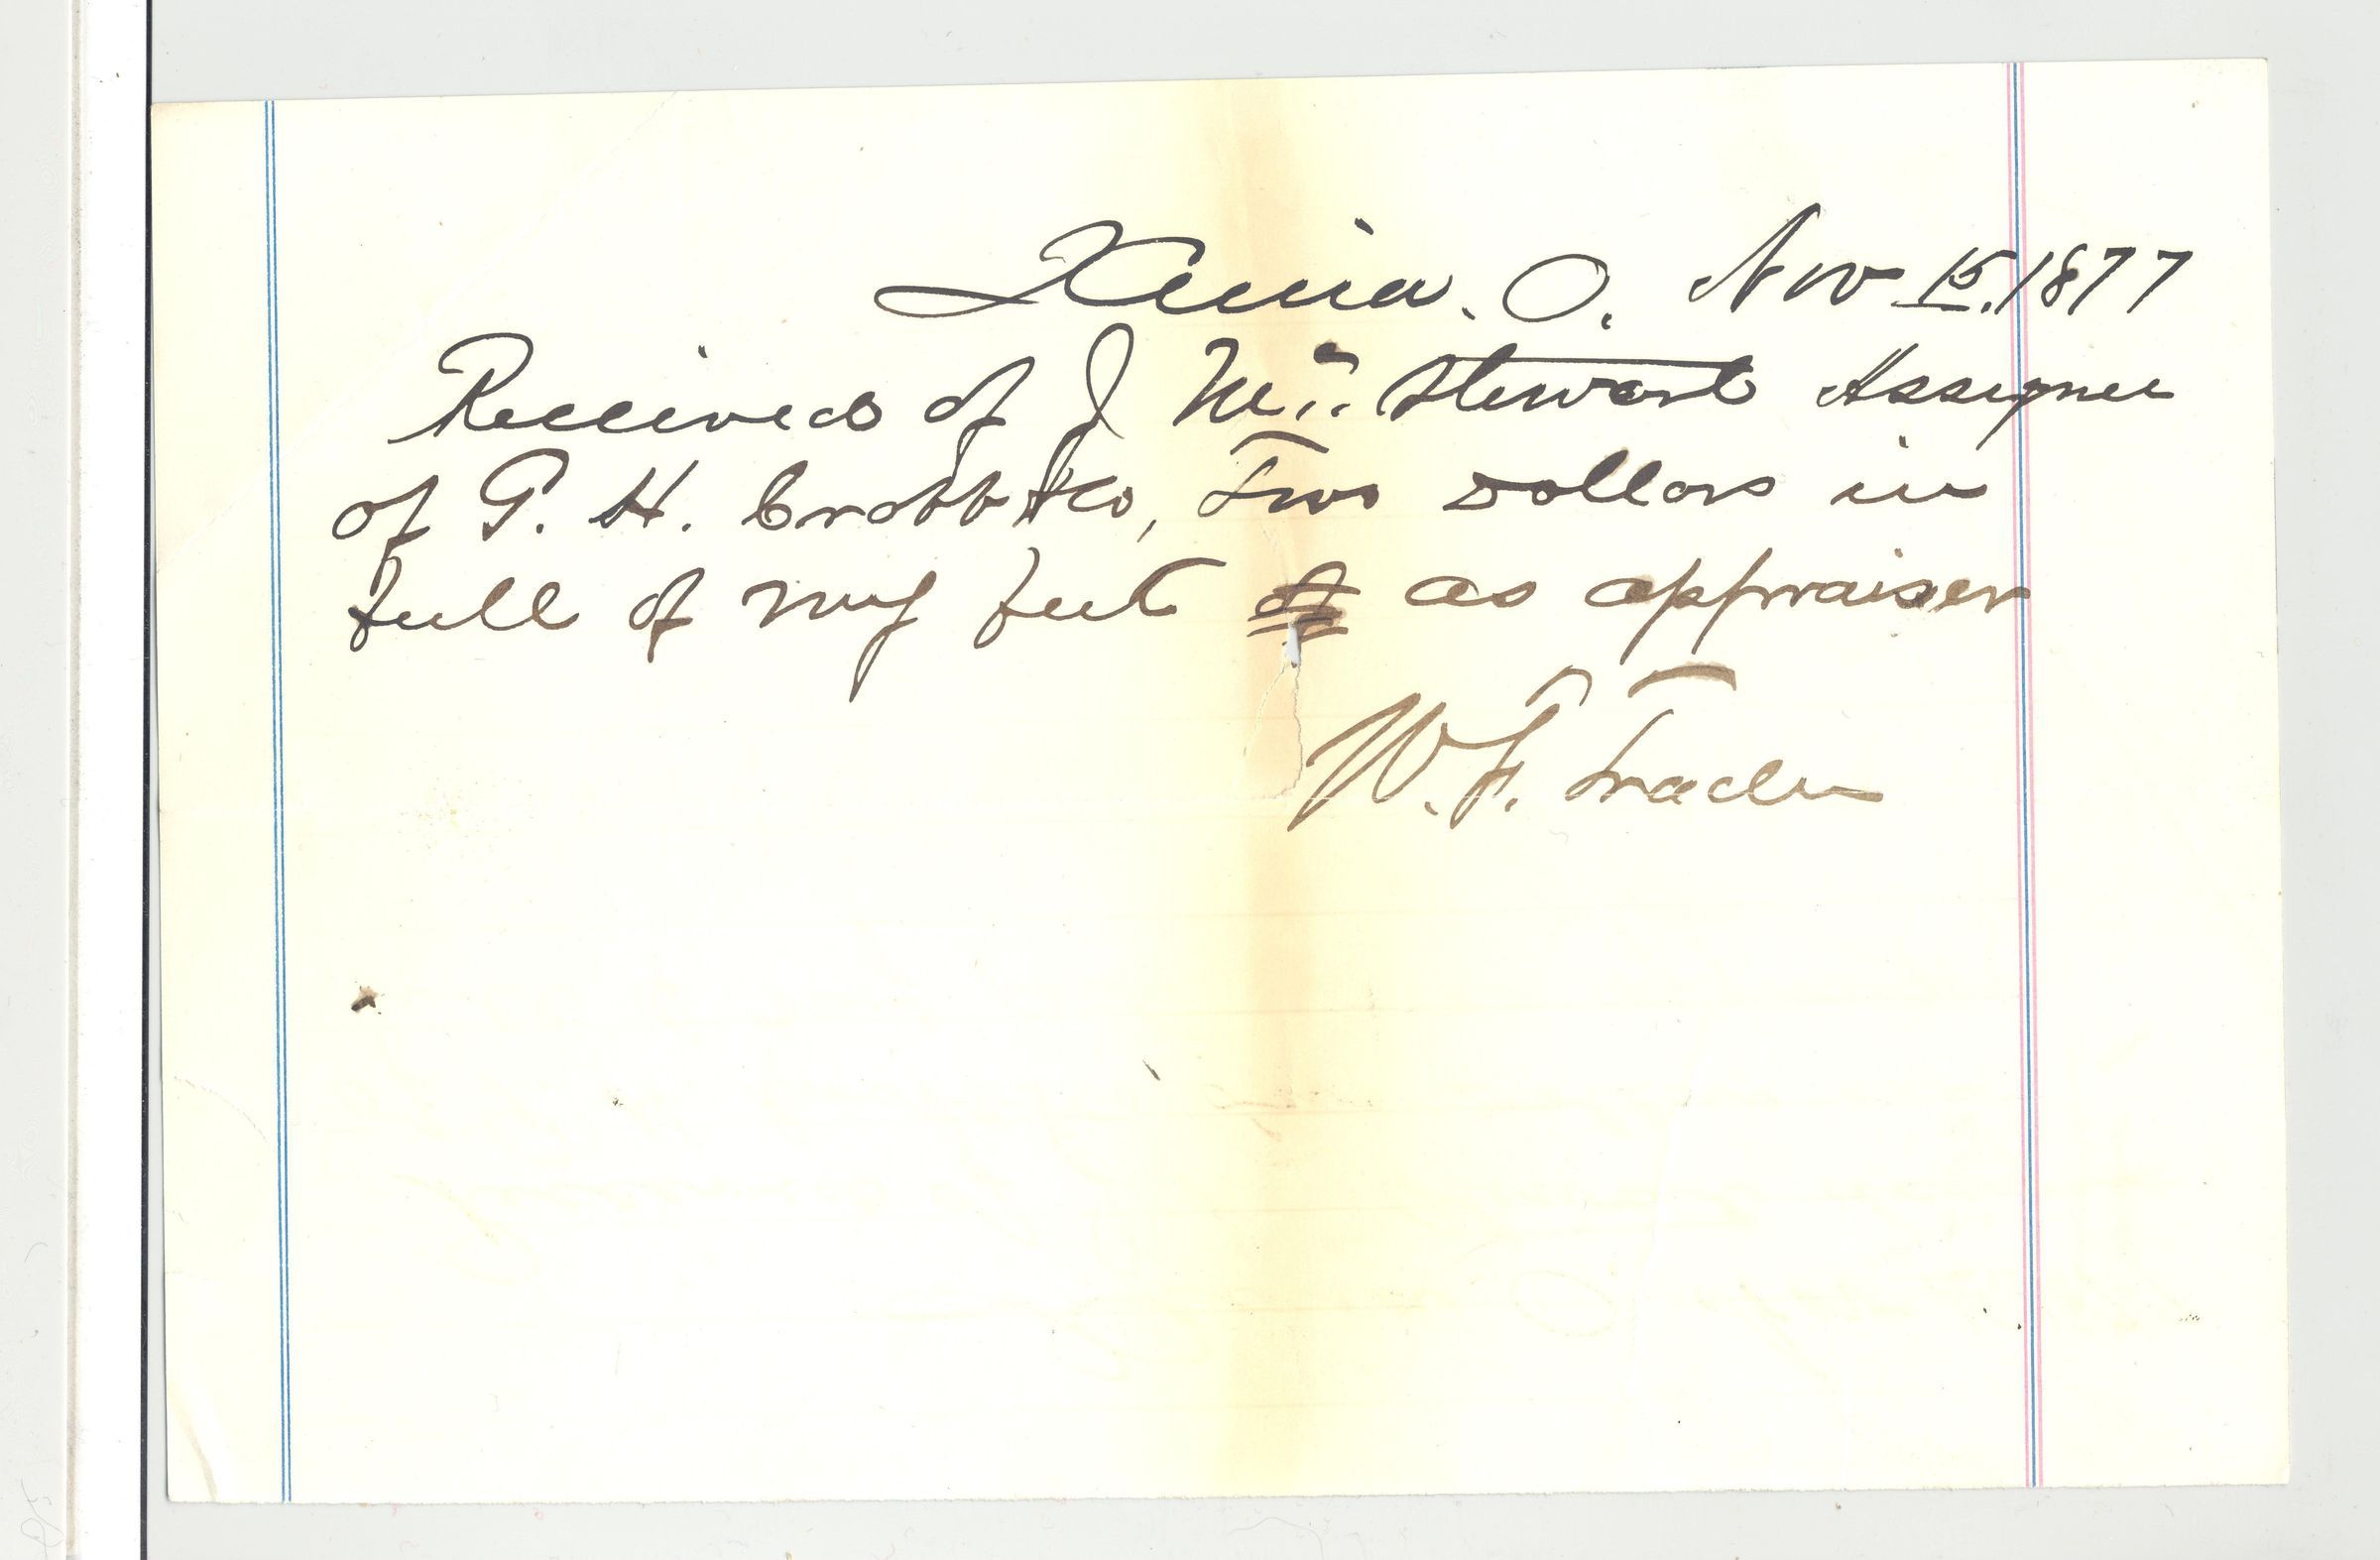 Xenia. O. Nov 15. 1877
Received of J Mc. Stewart Assignee
of G. H. Crabb & Co, Two Dollars in
full of my feet of as appraiser
W. F. Trader